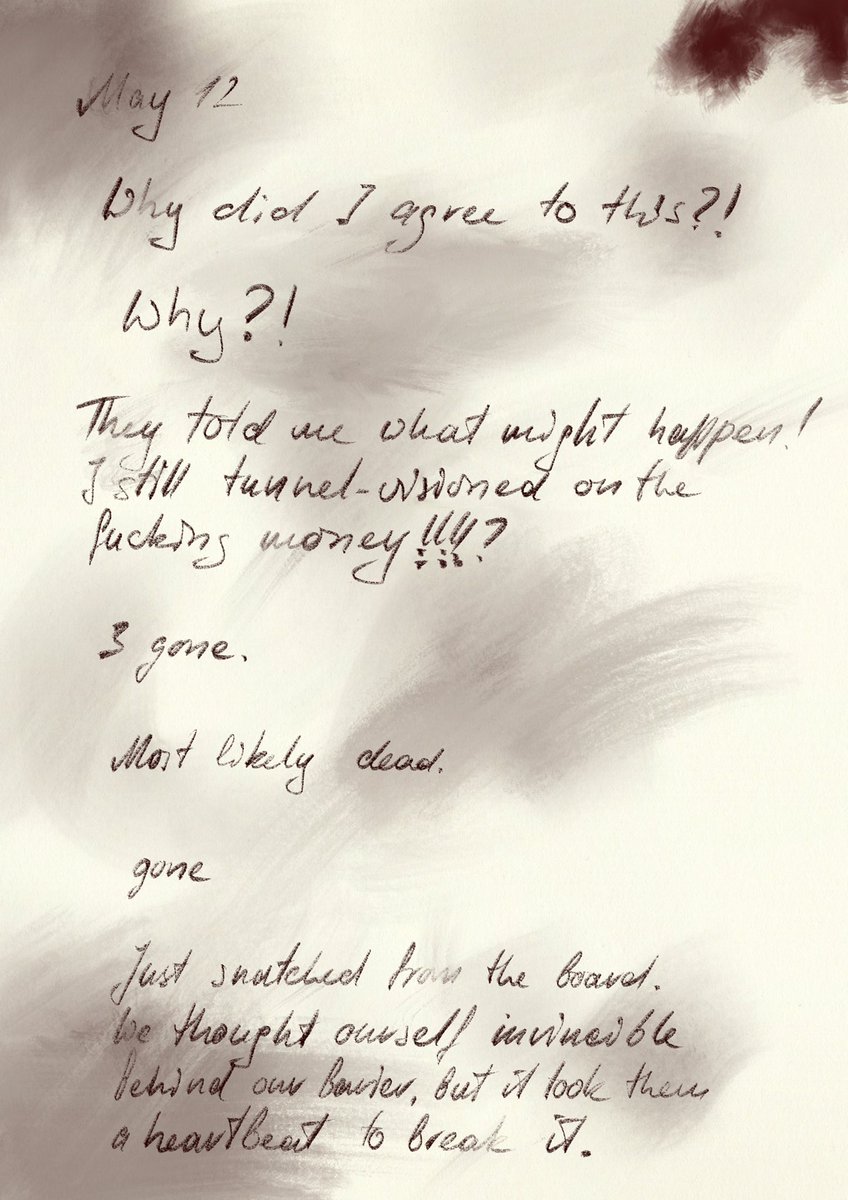 May 12
Why did I agree to this?!
Why?!
They told me what might happen!
I still tunnel-visioned on the
fucking money!!!!?
3 gone.
Most likely dead.
gone
Just snatched from the board.
We thought ourself invincible
behind our barier, but it took them
a heartbeat to break it.